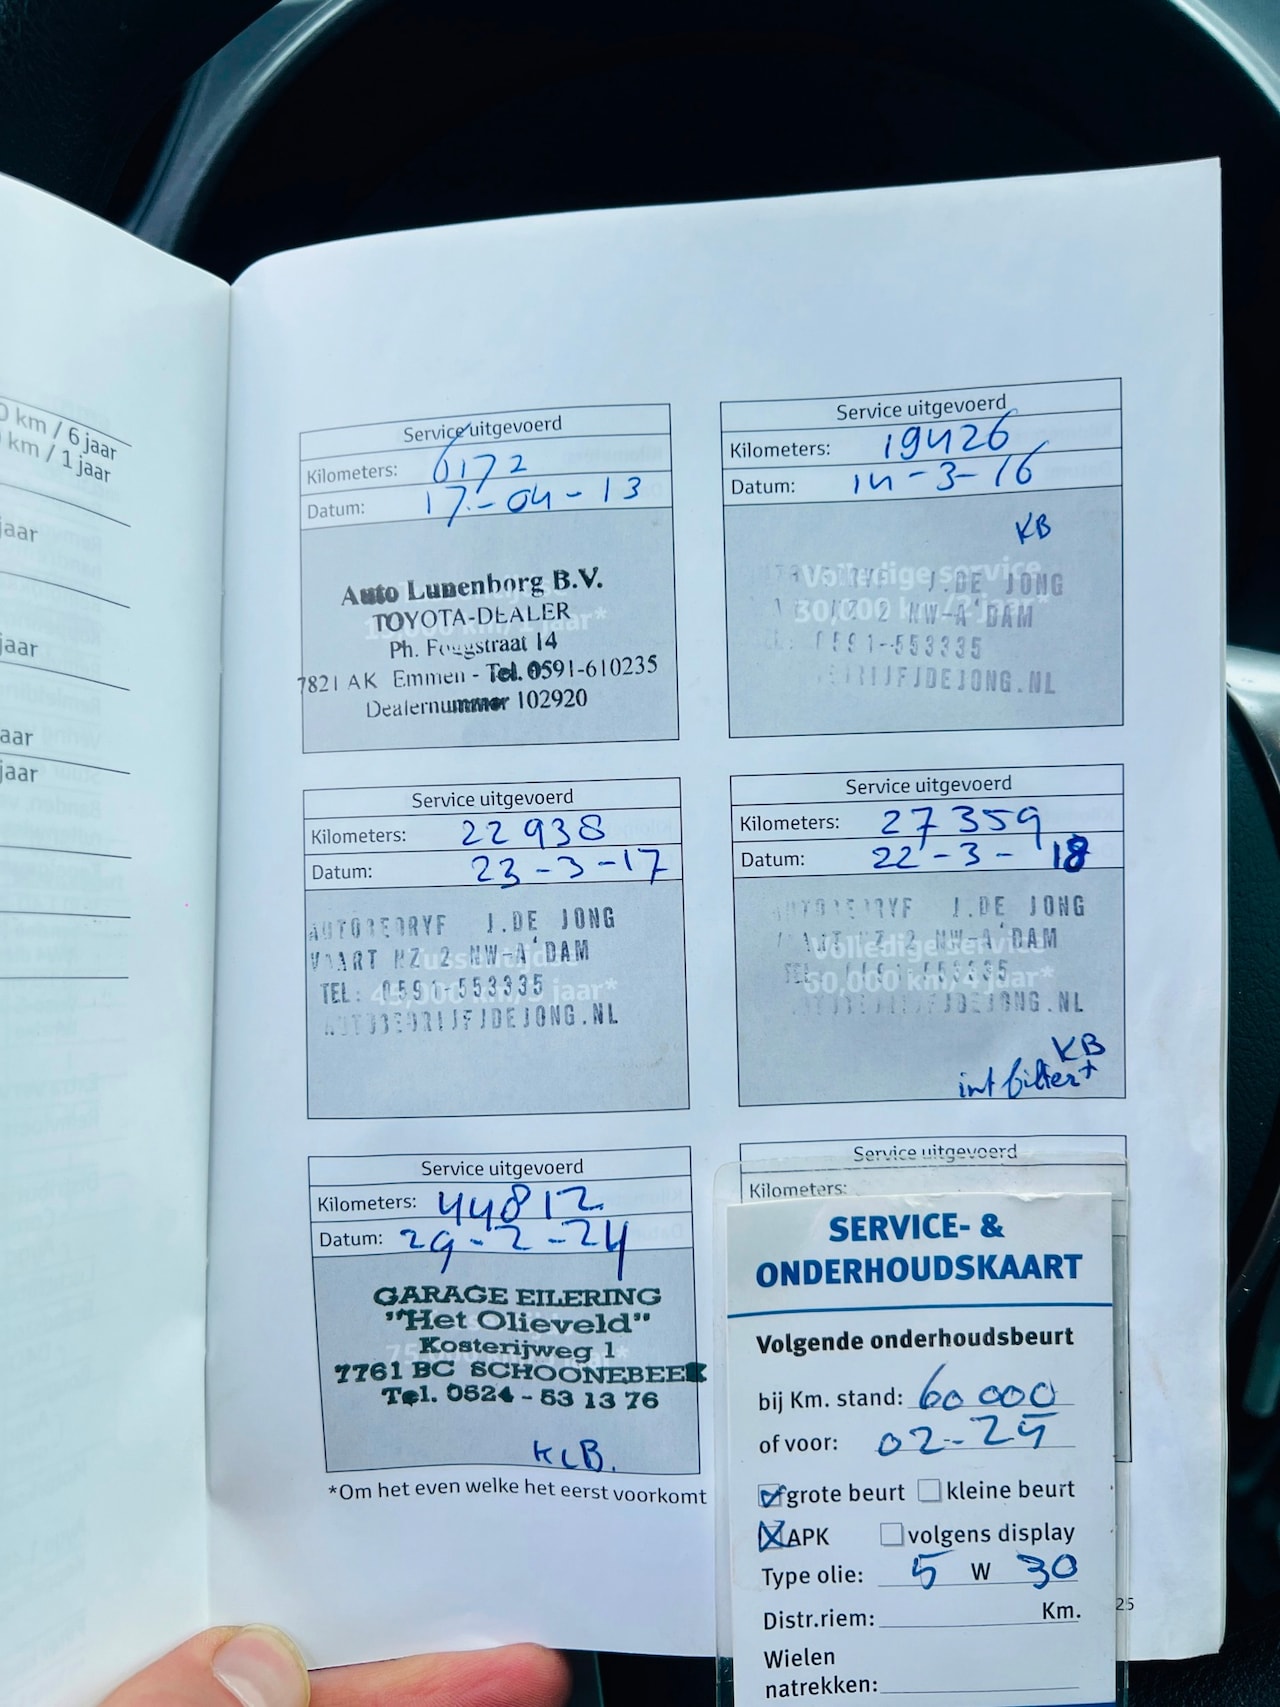 0 km / 6 jaar
km / 1 jaar
jaar
jaar
aar
jaar
Service uitgevoerd
Kilometers: 6172
Datum: 17-04-13
Auto Lunenborg B.V.
TOYOTA-DEALER
Ph. Foxgstraat 14
7821 AK Emmen - Tel. 0591-610235
Dealernummer 102920
Service uitgevoerd
Kilometers: 19426
Datum: 14-3-16
KB
Volledige service
30,000 km/2 jaar*
J.DE JONG
NZ 2 NW-A'DAM
0591-553335
RIJFJDEJONG.NL
Service uitgevoerd
Kilometers: 22938
Datum: 23-3-17
AUTOBEDRYF J.DE JONG
VAART NZ 2 NW-A'DAM
TEL: 0591-553335
45,000 km/3 jaar*
AUTOBEDRIJFJDEJONG.NL
Service uitgevoerd
Kilometers: 27359
Datum: 22-3-18
AUTOBEDRYF J.DE JONG
VAART NZ 2 NW-A'DAM
Volledige service
TEL: 0591-553335
60,000 km/4 jaar*
AUTOBEDRIJFJDEJONG.NL
KB
int filter+
Service uitgevoerd
Kilometers: 44812
Datum: 29-2-24
GARAGE EILERING
"Het Olieveld"
Kosterijweg 1
7761 BC SCHOONEBEEK
Tel. 0524 - 53 13 76
KLB.
*Om het even welke het eerst voorkomt
Service uitgevoerd
Kilometers:
SERVICE- &
ONDERHOUDSKAART
Volgende onderhoudsbeurt
bij Km. stand: 60 000
of voor: 02-25
grote beurt kleine beurt
APK volgens display
Type olie: 5 W 30
Distr.riem: Km.
Wielen
natrekken:
25